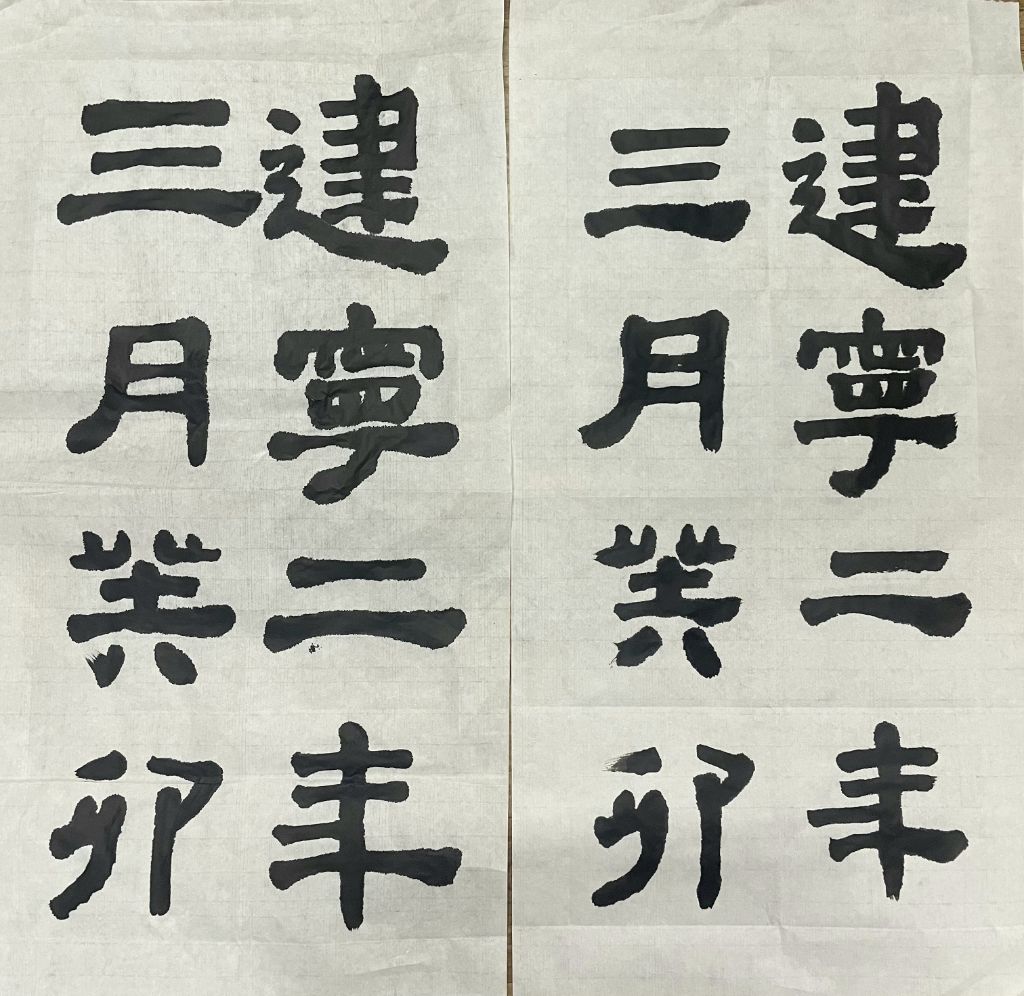 建寧二年
三月癸卯
建寧二年
三月癸卯